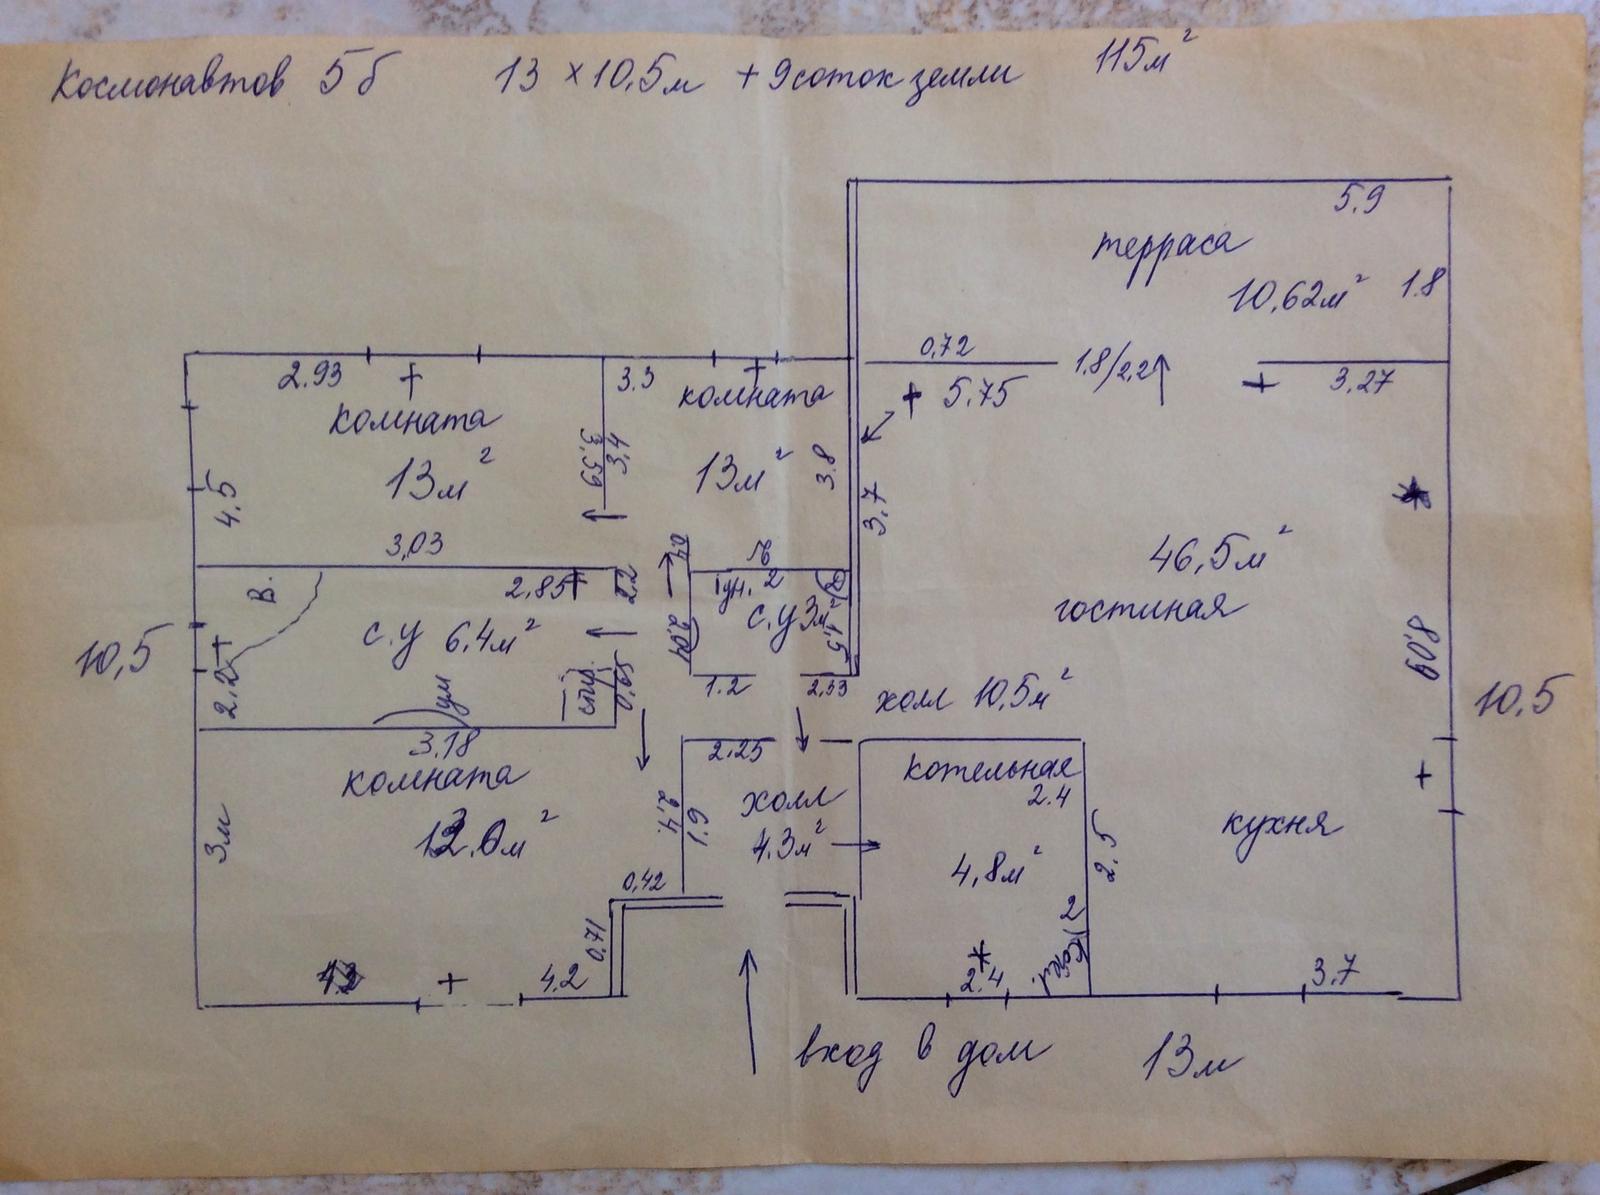 Космонавтов 5б 13 × 10.5м + 9 соток земли 115м²
5.9
терраса
10,62м² 1.8
0,72 1.8/2,2
2.93 3.3 3.27
+ 5.75
комната
комната
13м²
13м²
4.5
3,59
3,4
3.8
3.7
46,5м²
гостиная
3,03
В.
2.85
с.у 6.4м²
2.2
с.у 3м²
1.5
2
10,5
8.09
10.5
2.2
ум
0.65
1.2 2,33
холл 10.5м²
3.18
2.25
комната
3м
2.4
1.9
холл
4.3м²
котельная
2.4
4,8м²
2.5
кухня
0,42
0.71
2
котел.
4.2
2.4
3.7
вход в дом
13м